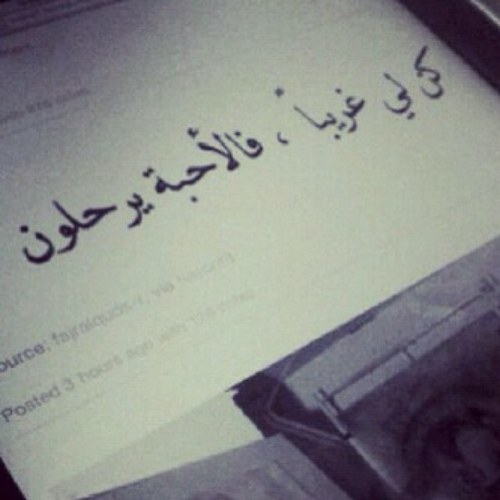 كن لي غريباً ، فالأحبة يرحلون
ource: fajralquds-r, via
Posted 3 hours ago with notes